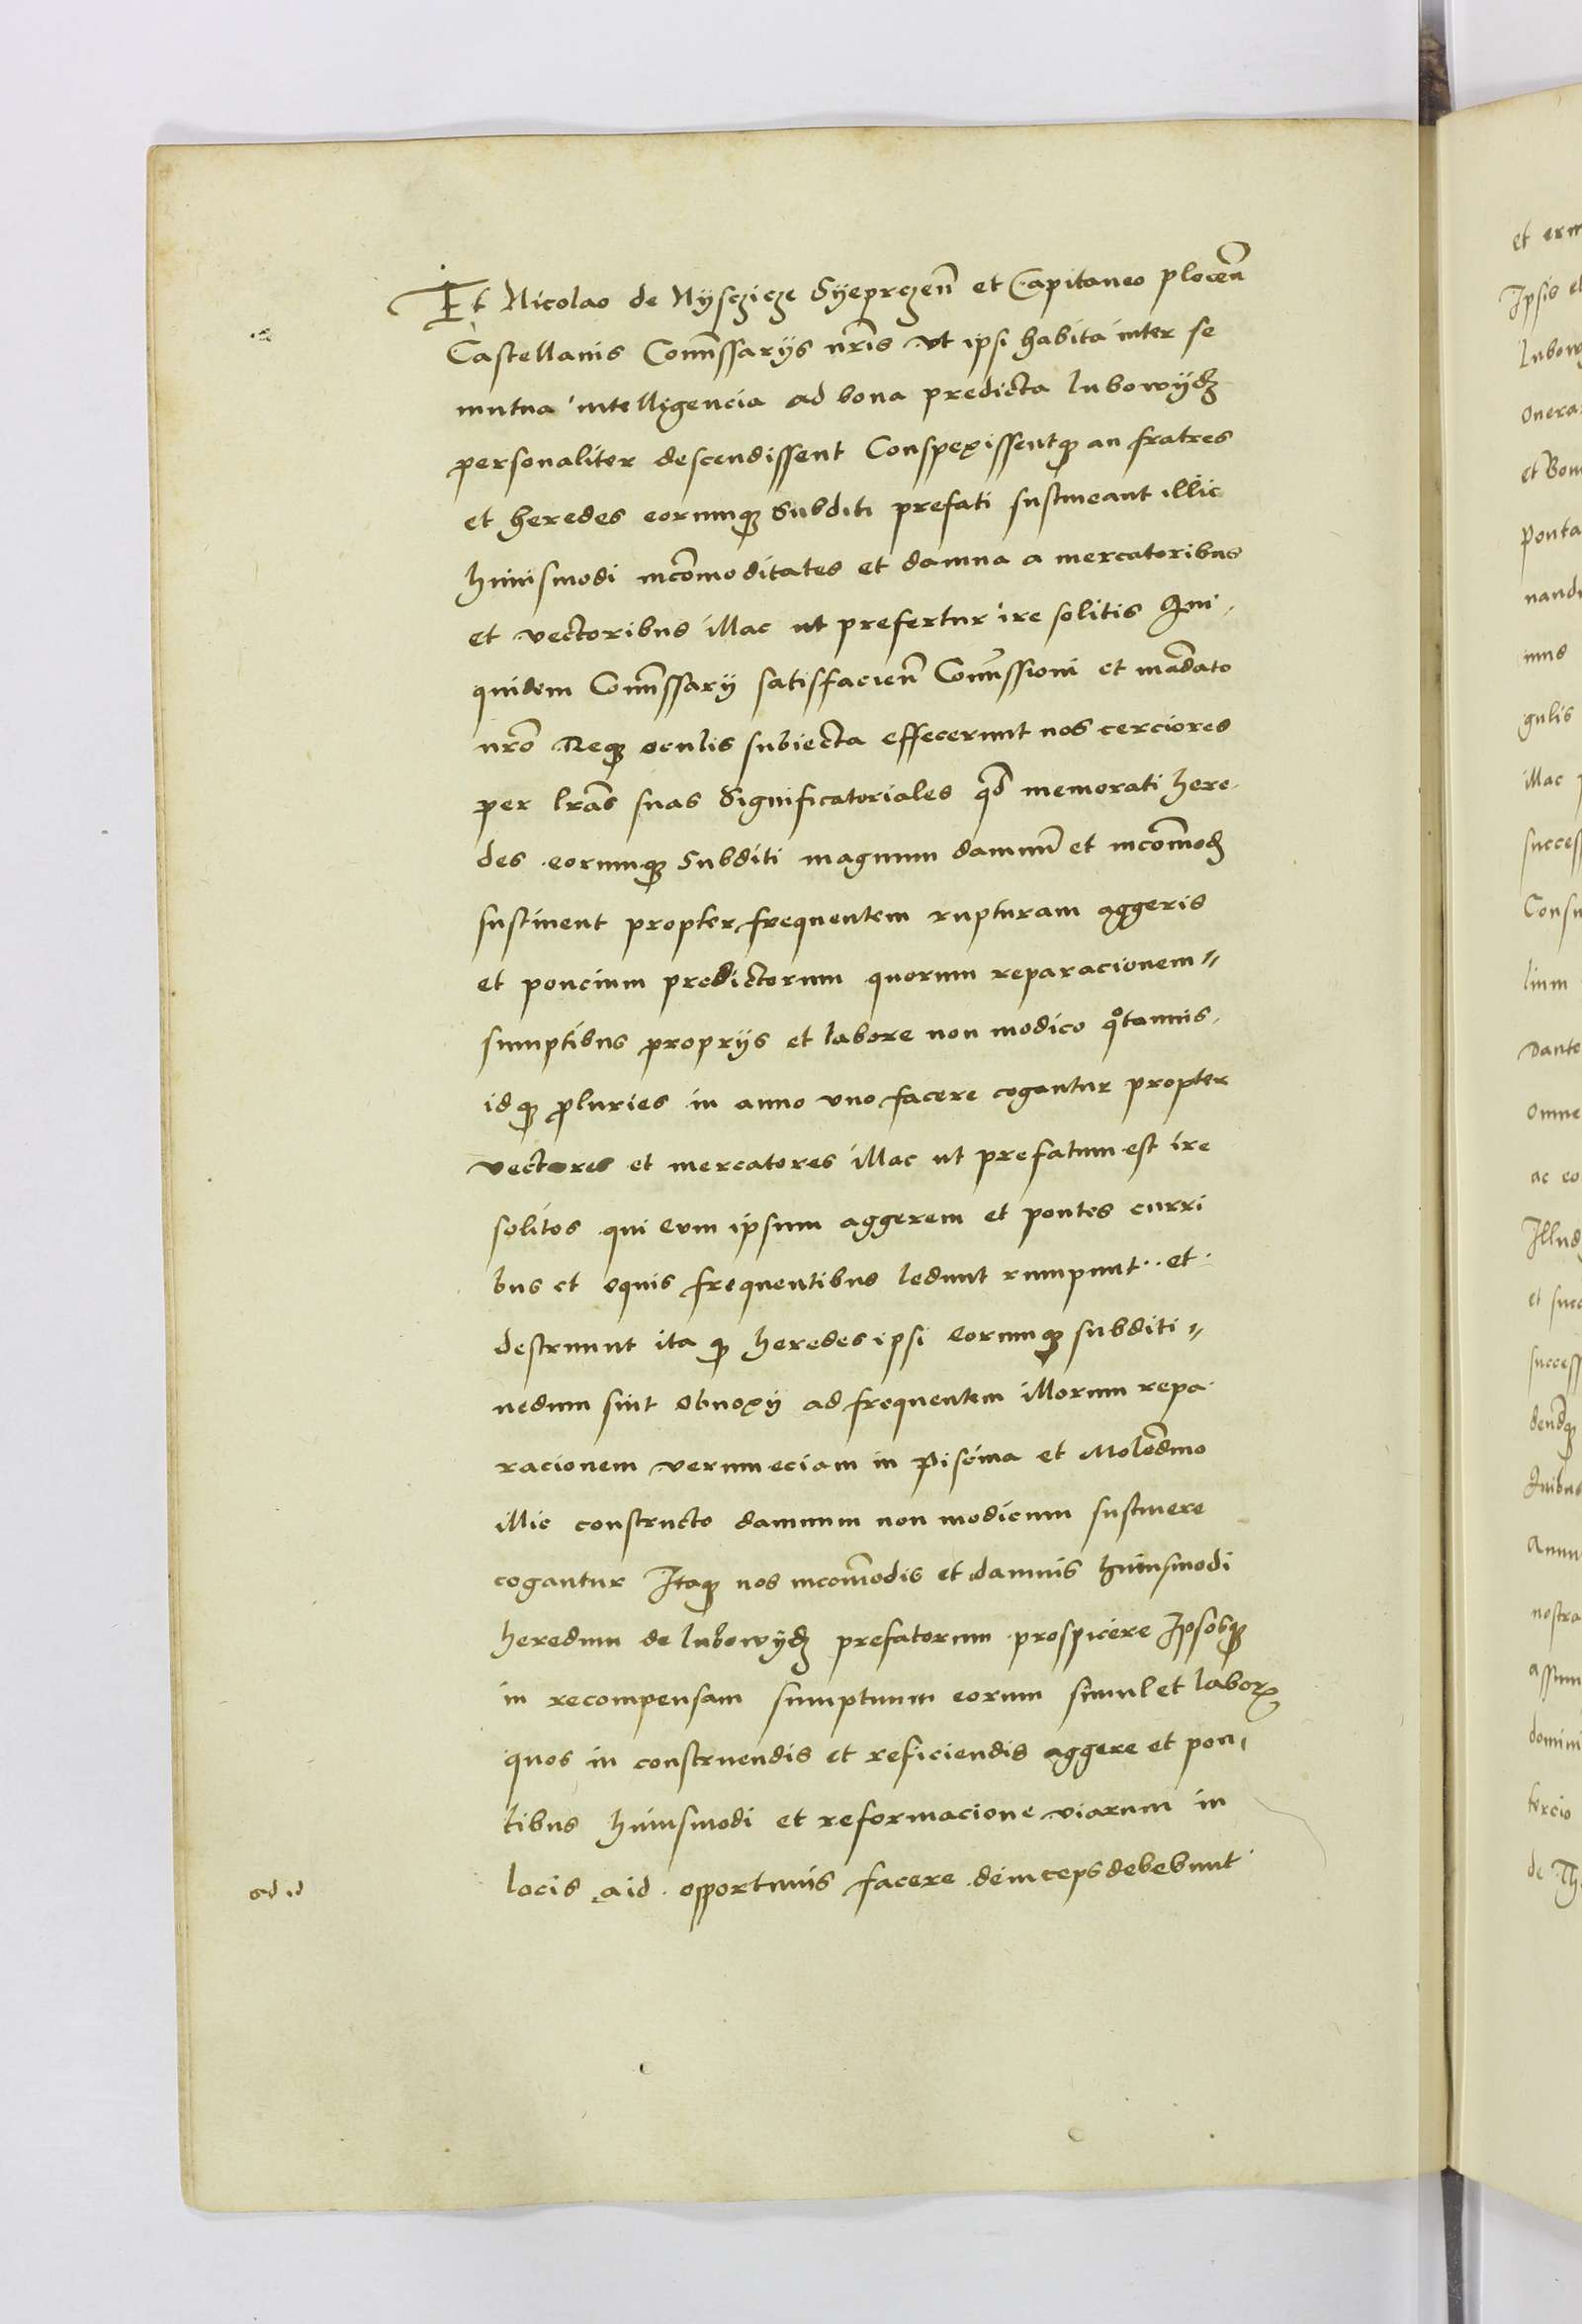 Et Nicolao de Nysczicze Syeprczeñ et Capitaneo ploceñ
Castellanis Com̃issarijs nr̃is vt ipsi habita inter se
mutua intelligencia ad bona predicta lubowydz
personaliter descendissent Conspexissentqꝫ an fratres
et heredes eorumqꝫ Subditi prefati sustineant illic
huiusmodi incõmoditates et damna a mercatoribus
et vectoribus illac ut prefertur ire solitis Qui
quidem Com̃issarij satisfacieñ Com̃issioni et mãdato
nr̃o Reqꝫ oculis subiecta effecerunt nos cerciores
per lr̃as suas Significatoriales qd̃ memorati here
des eorumqꝫ Subditi magnum damnũ et incõmodꝫ
sustinent propter frequentem rupturam aggeris
et poncium predictorum quorum reparacionem
sumptibus proprijs et labore non modico qͦtannis
idqꝫ pluries in anno vno facere cogantur propter
vectores et mercatores illac ut prefatum est ire
solitos qui eum ipsum aggerem et pontes curri
bus et equis frequentibus ledunt rumpunt et
destruunt ita qꝫ heredes ipsi eorumqꝫ subditi
nedum sint obnoxij ad frequentem illorum repa
racionem verum eciam in piscina et Molẽdino
illic constructo damnum non modicum sustinere
cogantur Itaqꝫ nos incõmodis et damnis huiusmodi
heredum de lubowydz prefatorum prospicere Ipsosqꝫ
in recompensam sumptuum eorum simul et laborꝫ
quos in construendis et reficiendis aggere et pon
tibus huiusmodi et reformacione viarum in
locis aid oportunis facere deinceps debebunt
ad id
et erm
Ipsis et
lubow
onera
et Bon
ponta
nand
mus
gulis
illac p
success
Consu
lium
Dante
omne
ac eo
Illud
et succ
success
dendqꝫ
Quibus
Annu
nostra
assum
domini
tercio
de Th